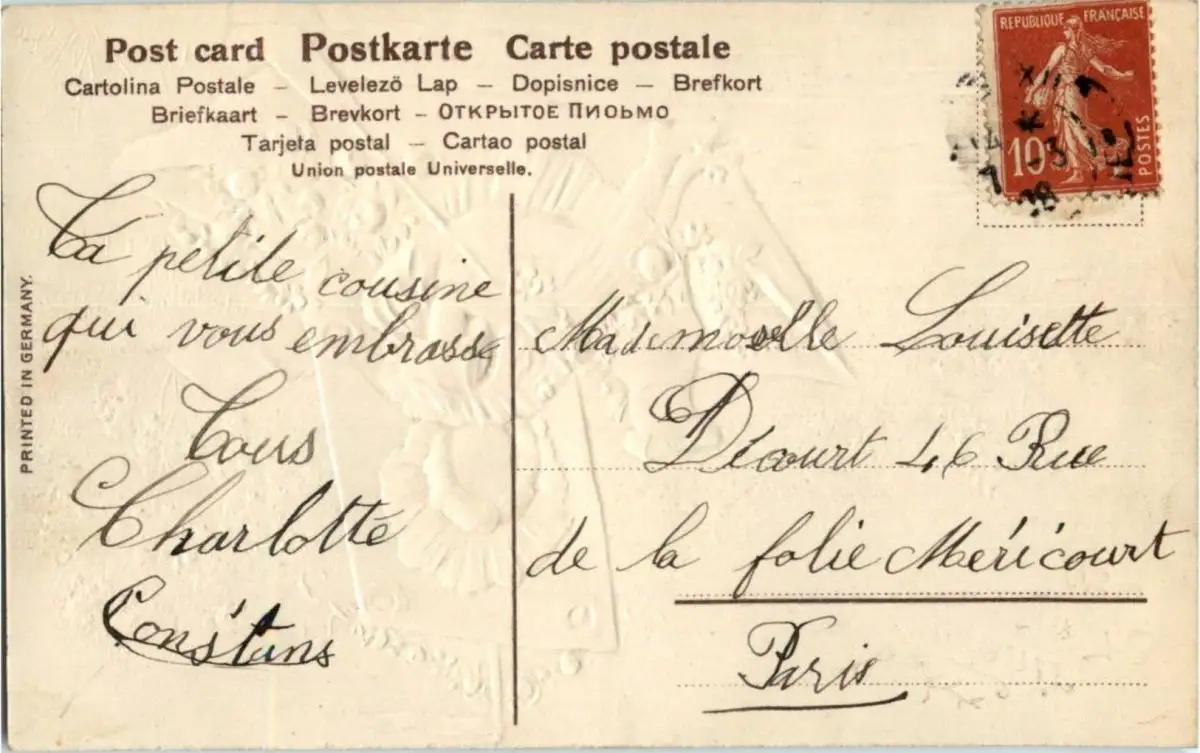 Post card Postkarte Carte postale
Cartolina Postale – Levelezö Lap – Dopisnice – Brefkort
Briefkaart – Brevkort – ОТКРЫТОЕ ПИОЬМО
Tarjeta postal – Cartao postal
Union postale Universelle.
REPUBLIQUE FRANÇAISE
10c
POSTES
PRINTED IN GERMANY.
La petite cousine
qui vous embrasse
Tous
Charlotte
Constans
Mademoiselle Louisette
Décourt 46 Rue
de la folie Méricourt
Paris